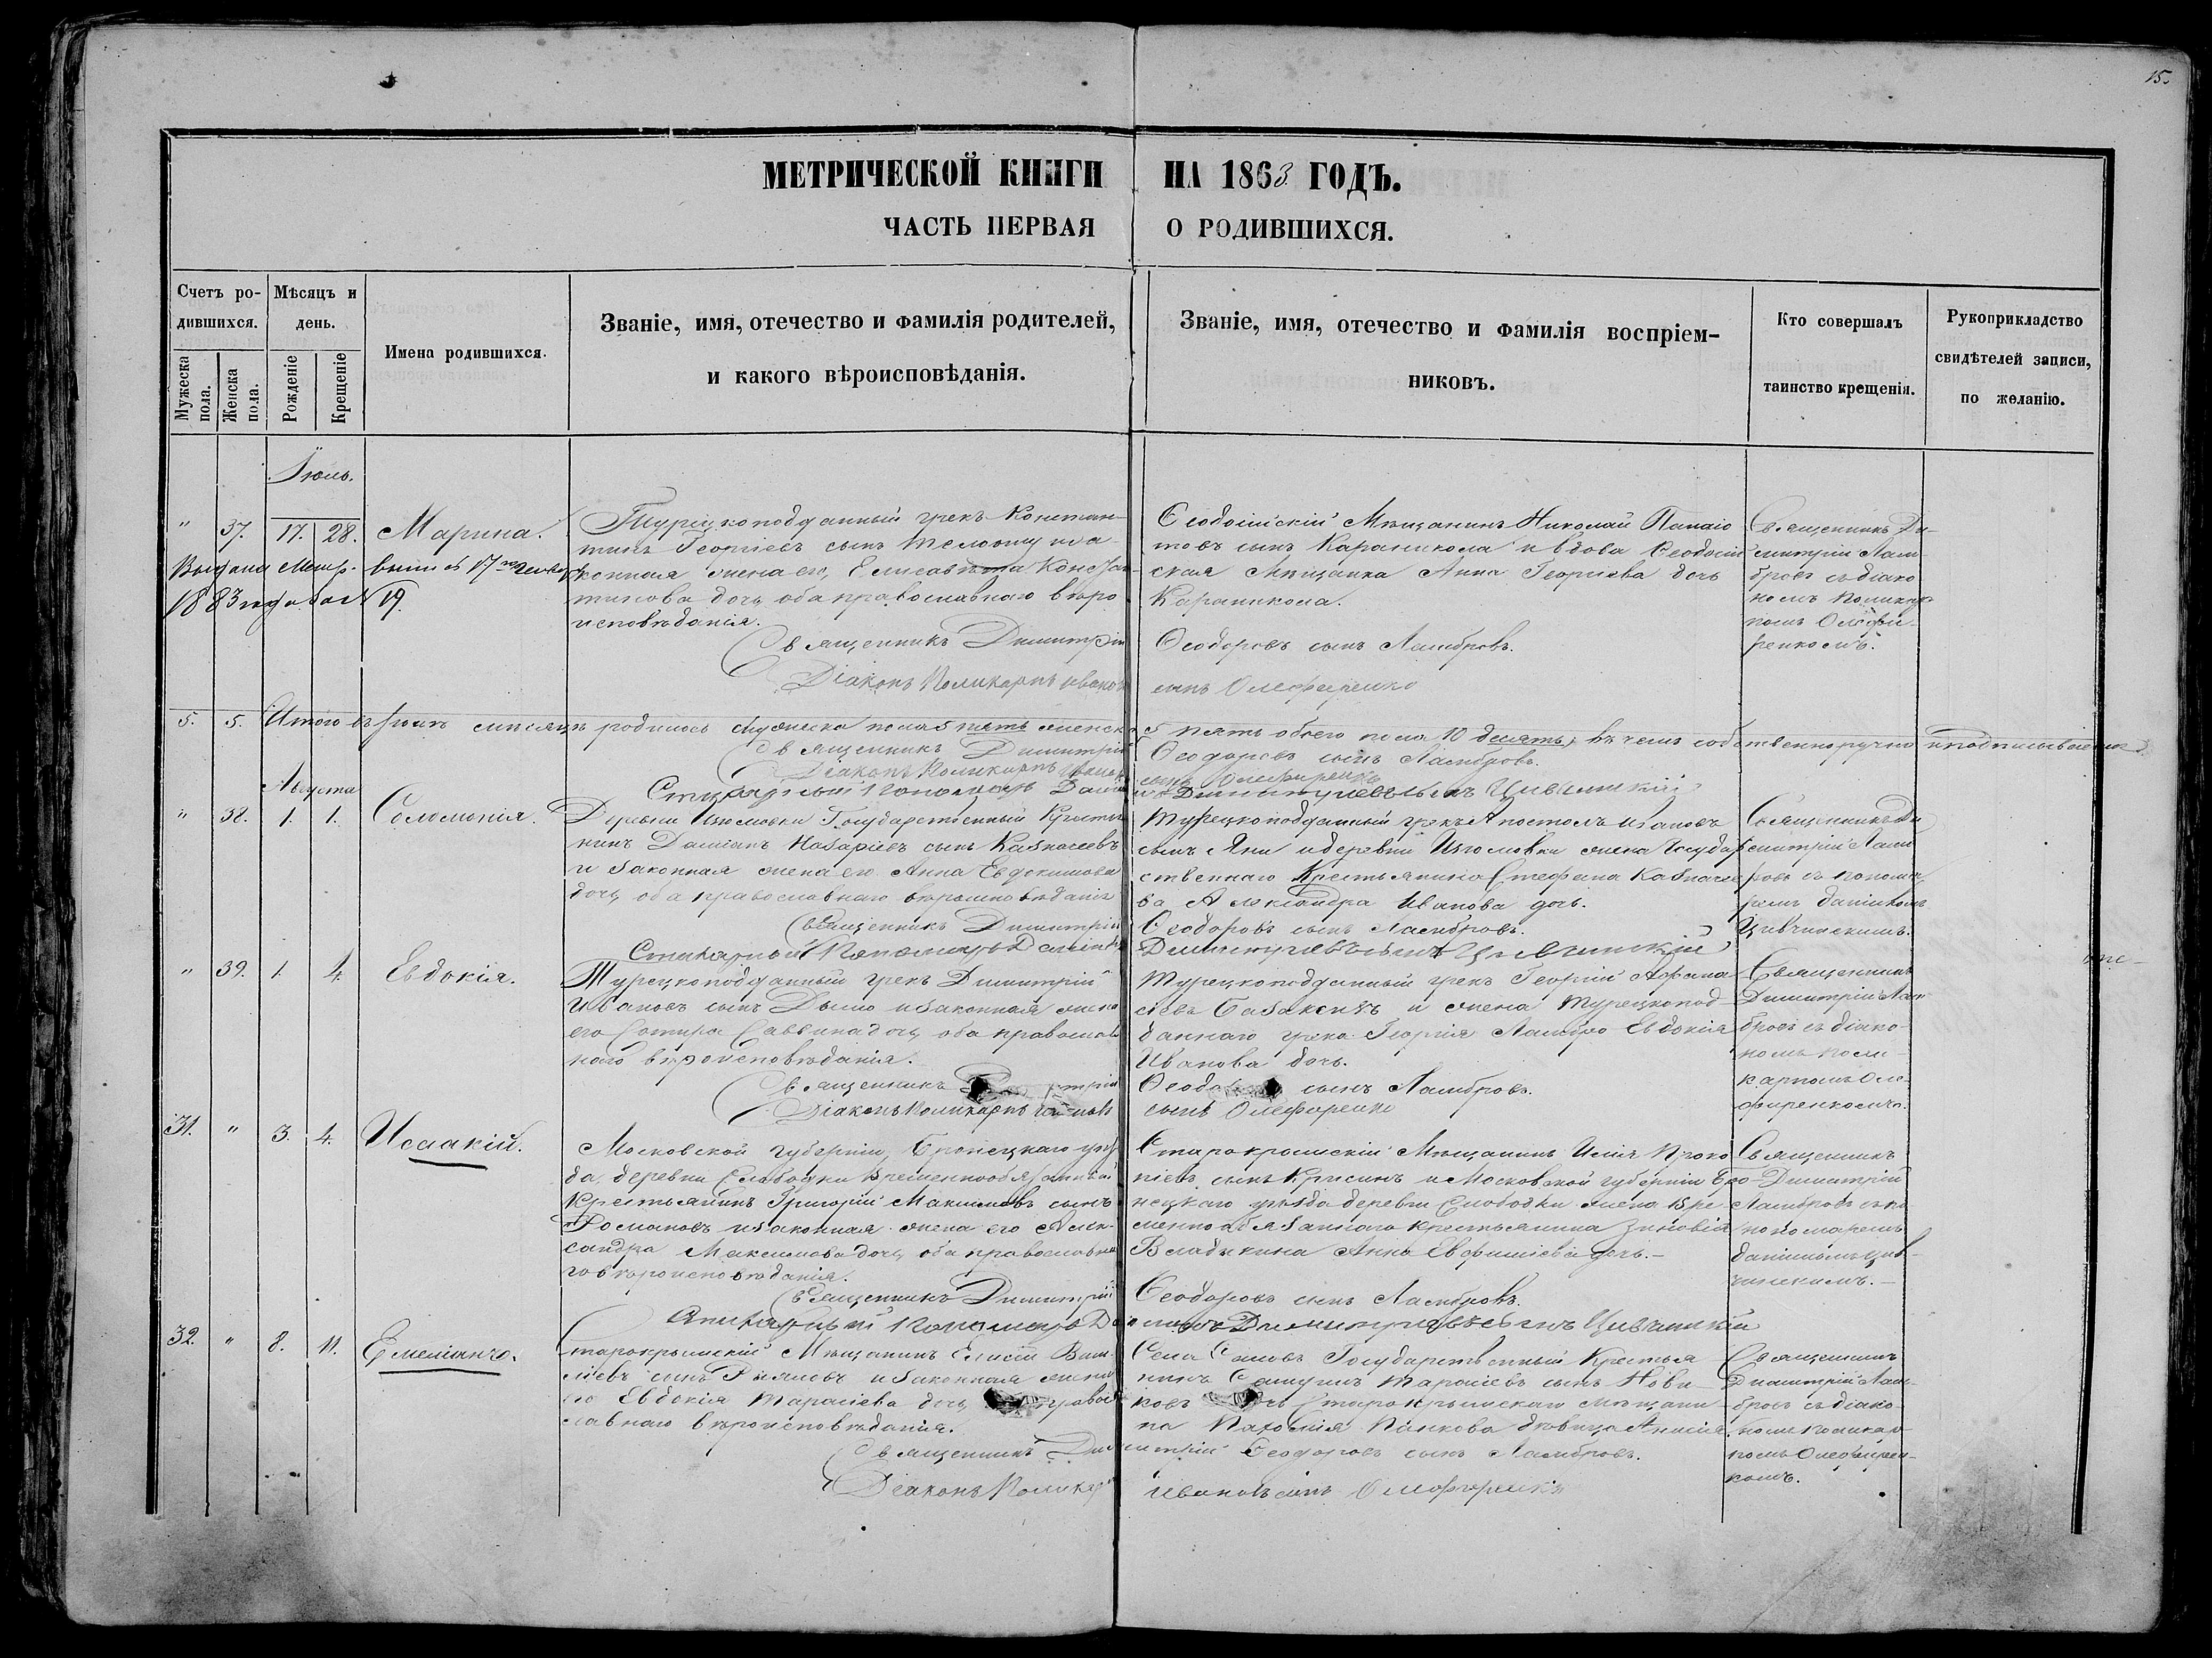 15.
МЕТРИЧЕСКОЙ КНИГИ НА 1863 ГОДЪ.
ЧАСТЬ ПЕРВАЯ О РОДИВШИХСЯ.
Счетъ ро-
дившихся.
Мужеска
пола.
Женска
пола.
Мѣсяцъ и
день.
Рожденіе
Крещеніе
Имена родившихся.
Званіе, имя, отечество и фамилія родителей,
и какого вѣроисповѣданія.
Званіе, имя, отечество и фамилія воспріем-
никовъ.
Кто совершалъ
таинство крещенія.
Рукоприкладство
свидѣтелей записи,
по желанію.
Іюль.
" 37. 17. 28. Марина.
1883 года 19.
Турецкоподданный грекъ Констан-
тинъ Георгіевъ сынъ
жена его, Елисавета Констан-
тинова дочь оба православнаго вѣро
исповѣданія.
Священникъ Димитрій
Діаконъ Поликарпъ Ивановъ
Ѳеодосійскій Мѣщанинъ Николай Панаіо
товъ сынъ Караникола и вдова Ѳеодосій
ская Мѣщанка Анна Георгіева дочь
Караникола.
Ѳеодоровъ сынъ Ламбровъ.
сынъ Олефиренко
Священникъ Ди-
митрій Лам
бровъ съ діако
номъ Поликар
помъ Олефи-
ренкомъ.
5. 5. Итого въ Іюлѣ мѣсяцѣ родилось мужеска пола 5 пять женска 5 пять обоего пола 10 десять; въ чемъ собственноручно и подписываемся
Священникъ Димитрій Ѳеодоровъ сынъ Ламбровъ.
Діаконъ Поликарпъ Ивановъ сынъ Олефиренко
Пономарь Димитріевъ сынъ Цивчинскій
Августа
" 38. 1. 1. Соломонія.
Деревни Изюмовки Государственный Крестья
нинъ Даміанъ Назаріевъ сынъ Казначеевъ
и законная жена его Анна Евдокимова
дочь оба православнаго вѣроисповѣданія
Священникъ Димитрій
Пономарь
Турецкоподданный грекъ Апостолъ Ивановъ
сынъ Яни и деревни Изюмовки жена Государ
ственнаго Крестьянина Стефана Казначее
ва Александра Иванова дочь.
Ѳеодоровъ сынъ Ламбровъ.
Димитріевъ сынъ Цивчинскій
Священникъ Ди
митрій Ламб
ровъ съ понома
ремъ Даніиломъ
Цивчинскимъ.
" 39. 1. 4. Евдокія.
Турецкоподданный грекъ Димитрій
Ивановъ сынъ Димо и законная жена
его Сотира Саввина дочь оба православ
наго вѣроисповѣданія.
Священникъ
Діаконъ Поликарпъ Ивановъ
Турецкоподданный грекъ Георгій Афана
сіевъ и жена Турецкопод
даннаго грека Георгія Ламбро Евдокія
Иванова дочь.
сынъ Ламбровъ.
сынъ Олефиренко
Священникъ
Димитрій Лам
бровъ съ діако-
номъ Поли-
карпомъ Оле-
фиренкомъ.
31. " 3. 4. Исаакій.
Московской губерніи, Бронецкаго уѣз
да, деревни Слободки временнообязанный
Крестьянинъ Григорій Максимовъ сынъ
Романовъ и законная жена его Алек-
сандра Максимова дочь оба православна
го вѣроисповѣданія.
Священникъ Димитрій
Пономарь
Старокрымскій Мѣщанинъ Илія Проко
піевъ сынъ и Московской губерніи Бро-
нецкаго уѣзда деревни Слободки жена Вре
меннообязаннаго крестьянина Зиновія
Владыкина Анна Евфиміева дочь.-
Ѳеодоровъ сынъ Ламбровъ.
Димитріевъ сынъ Цивчинскій
Священникъ
Димитрій
Ламбровъ съ
пономаремъ
Даніиломъ Цив-
чинскимъ.-
32. " 8. 11. Емеліанъ.
Старокрымскій Мѣщанинъ Елисій Васи-
ліевъ сынъ и законная жена
его Евдокія Тарасіева дочь правос
лавнаго вѣроисповѣданія.
Священникъ Димитрій Ѳеодоровъ сынъ Ламбровъ.
Діаконъ Поликарпъ Ивановъ сынъ Олефиренко
Села Государственный Крестья
нинъ Тарасіевъ сынъ Нови-
ковъ Старокрымскаго мѣщани-
на Пахомія девица Анисія.
Священникъ
Димитрій Лам-
бровъ съ діако-
номъ Поликар
помъ Олефирен-
комъ.